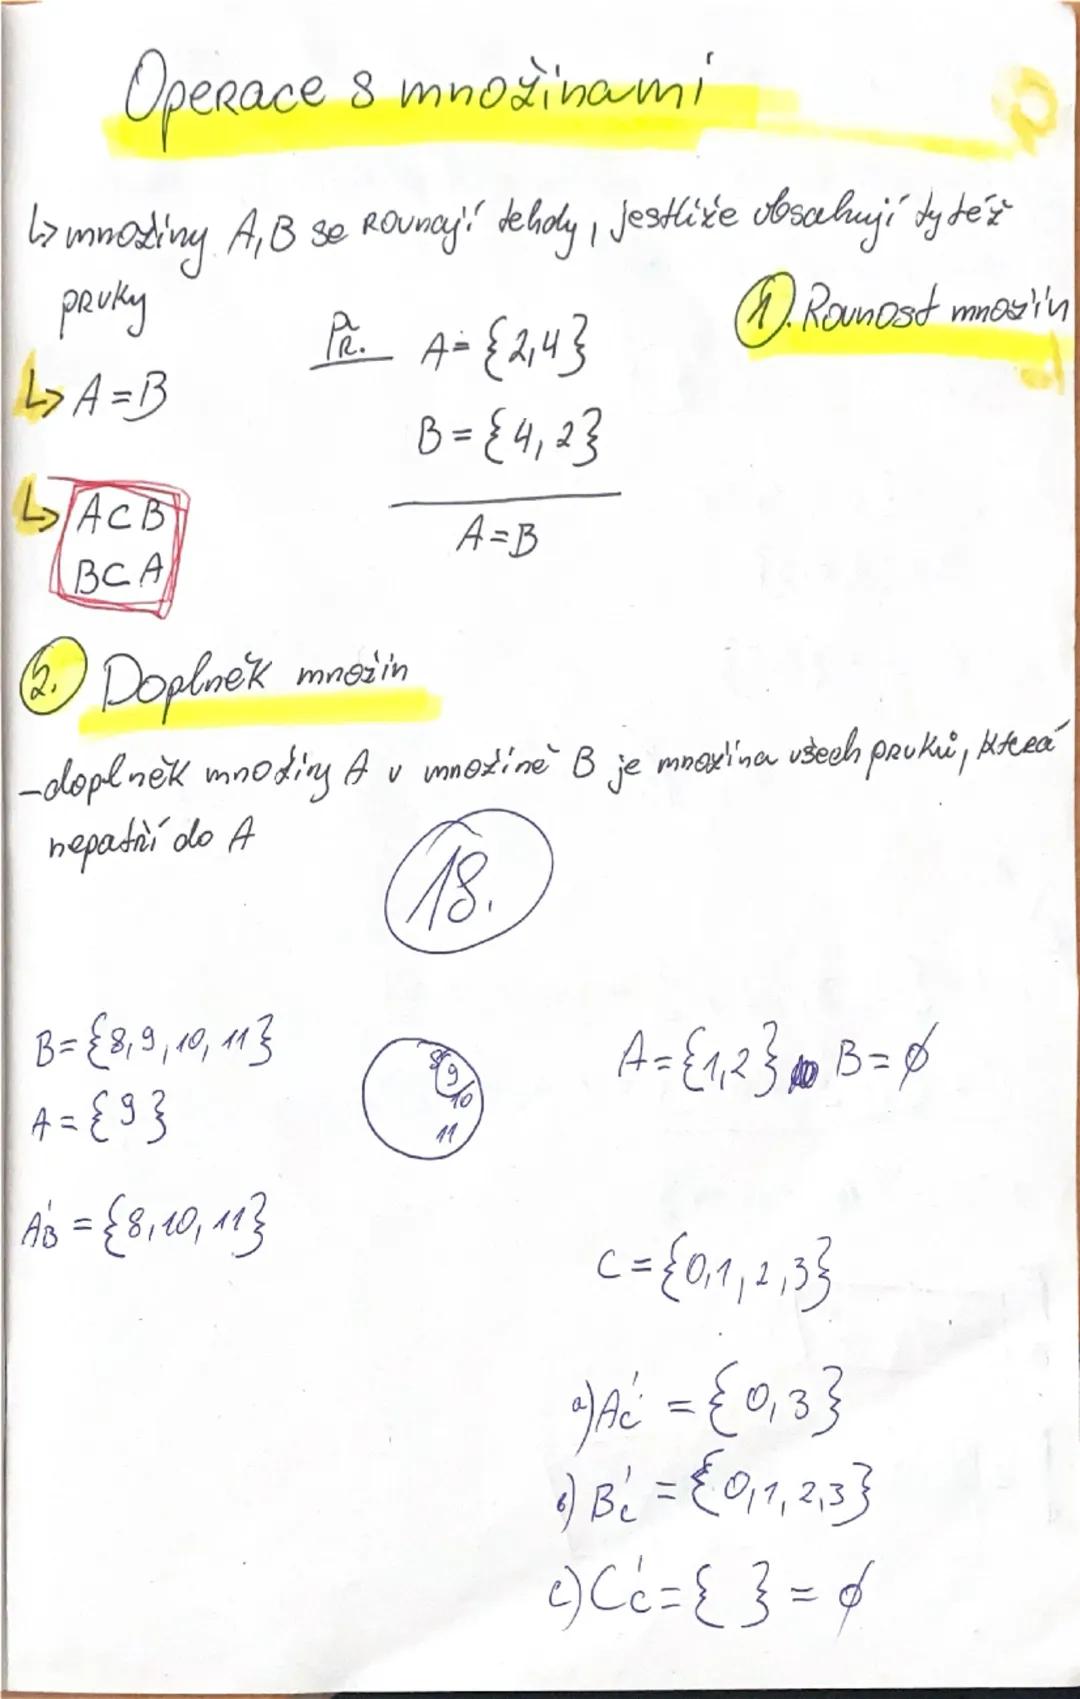 Operace s množinami
↳ množiny A,B se rovnají tehdy, jestliže obsahují tytéž
prvky
1. Rovnost množin
↳ A = B
Př. A = {2,4}
B = {4,2}
A = B
↳ A⊂B
B⊂A
2. Doplněk množin
- doplněk množiny A v množině B je množina všech prvků, která
nepatří do A
18.
B = {8,9,10,11}
A = {9}
A'B = {8,10,11}
8 9
10
11
A = {1,2} B = ∅
C = {0,1,2,3}
a) A'c = {0,3}
b) B'c = {0,1,2,3}
c) C'c = { } = ∅